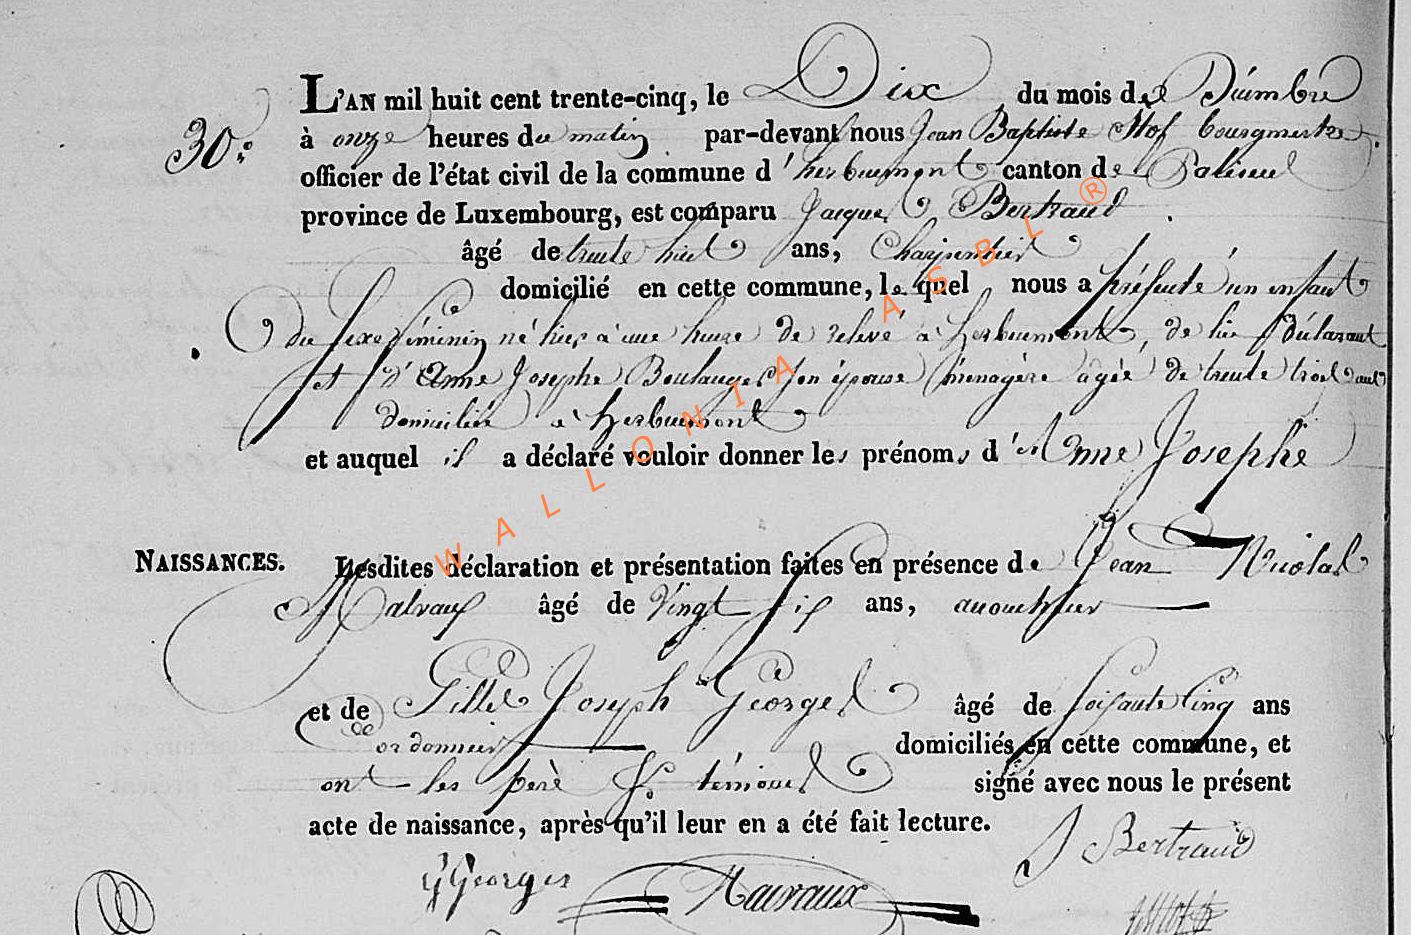 30.e
L'AN mil huit cent trente-cinq, le Dix du mois de Décembre
à onze heures du matin par-devant nous Jean Baptiste Hof bourgmestre
officier de l'état civil de la commune d'herbeumont canton de Paliseul
province de Luxembourg, est comparu Jacques Bertrand
âgé de trente huit ans, Charpentier
domicilié en cette commune, lequel nous a présenté un enfant
du sexe féminin né hier à une heure de relevé à herbeumont, de lui déclarant
et d'Anne Josephe Boulanger son épouse ménagère agée de trente trois ans
domiciliée à herbeumont
et auquel il a déclaré vouloir donner les prénoms d'Anne Josephe
NAISSANCES.
Lesdites déclaration et présentation faites en présence de Jean Nicolas
Malvaux âgé de Vingt six ans,
et de Gille Joseph Georges âgé de soisante Cinq ans
cordonnier domiciliés en cette commune, et
ont les père & témoins signé avec nous le présent
acte de naissance, après qu'il leur en a été fait lecture.
J Bertrand
G Georges
Malvaux
WALLONIA ASBL ®